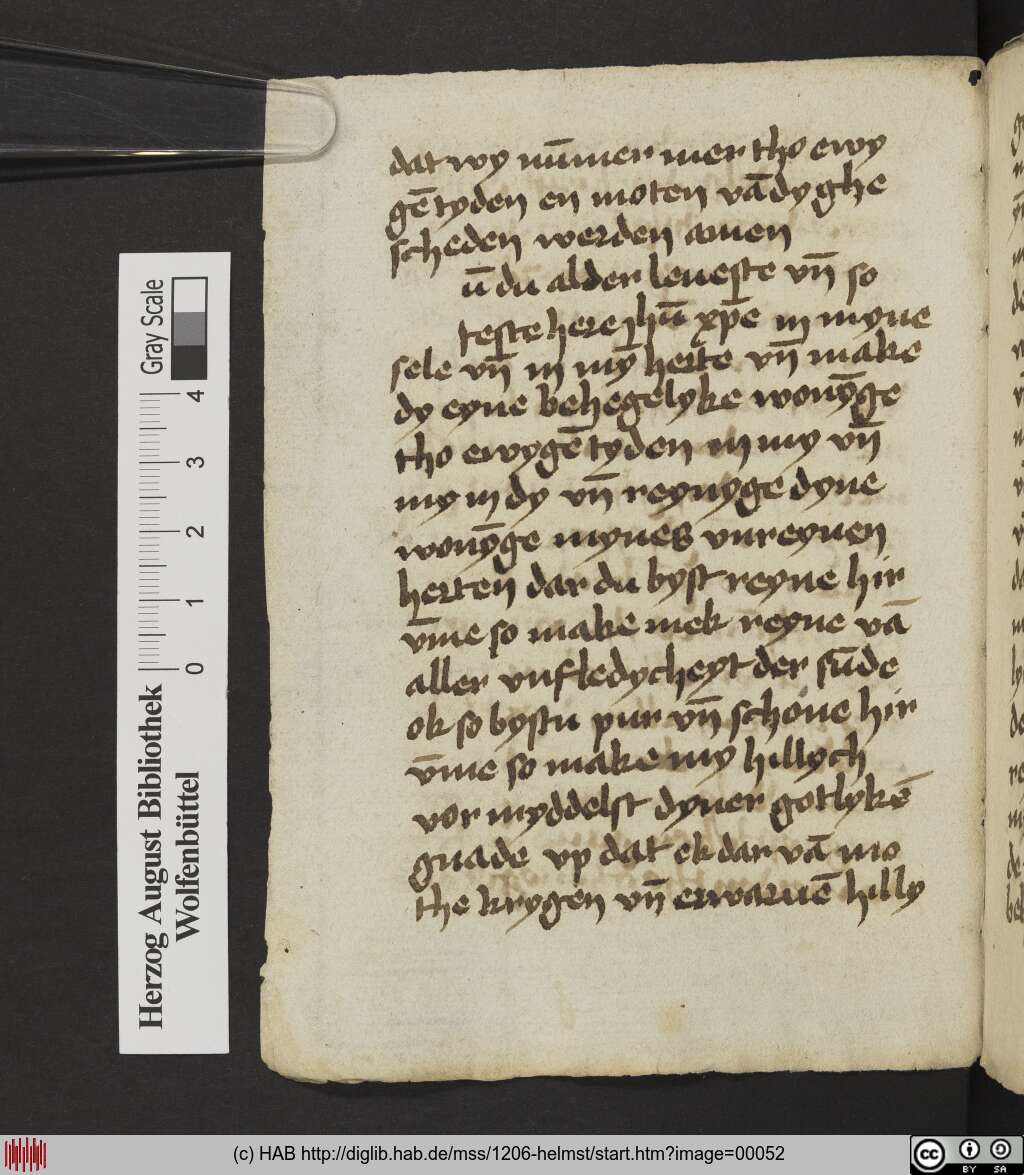 dat wy nūmer mer tho ewy
gē tyden en moten vā dy ghe
scheden werden amen
ū du alder leueste vn̄ so
teste here ihū xp̄e in myne
sele vn̄ in mȳ herte vn̄ make
dy eyne behegelyke wonȳge
tho ewygē tyden in my vn̄
my in dy vn̄ reynyge dyne
wonȳge mynes vnreynen
herten dar du byst reyne hir
v̄me so make mek reyne vā
aller vnfledycheyt der sūde
ok so bystu pur vn̄ schone hir
v̄me so make my hillych
vor myddelst dyner gotlykē
gnade vp dat ek dar vā mo
the krygen vn̄ erwaruē hilly
Herzog August Bibliothek
Wolfenbüttel
Gray Scale
0 1 2 3 4
(c) HAB http://diglib.hab.de/mss/1206-helmst/start.htm?image=00052
cc BY SA